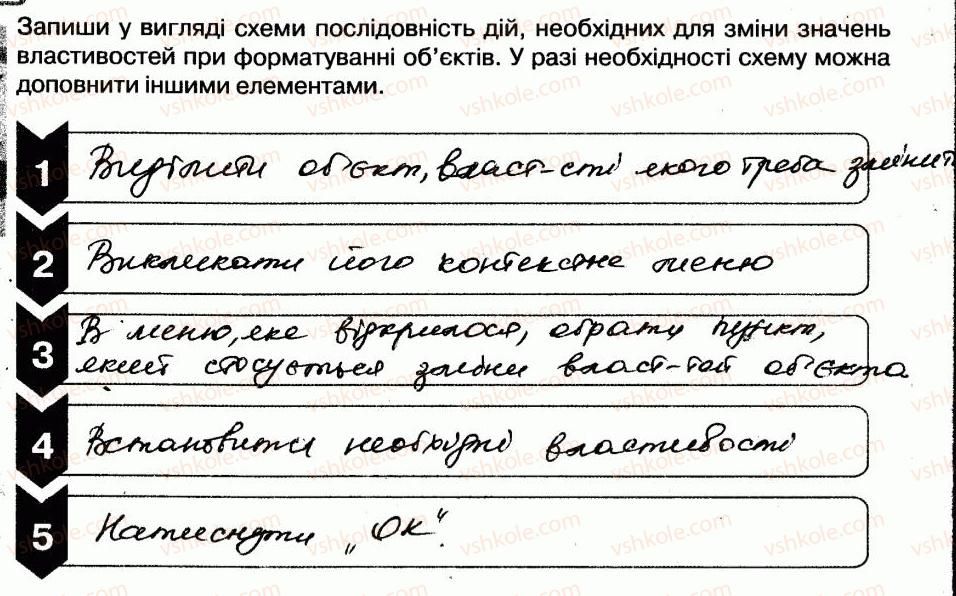 Запиши у вигляді схеми послідовність дій, необхідних для зміни значень
властивостей при форматуванні об'єктів. У разі необхідності схему можна
доповнити іншими елементами.
1 Виділити об'єкт, власт-сті якого треба змінити
2 Викликати його контекстне меню
3 В меню, яке відкрилося, обрати пункт,
який стосується зміни власт-тей об'єкта
4 Встановити необхідні властивості
5 Натиснути „Ок".